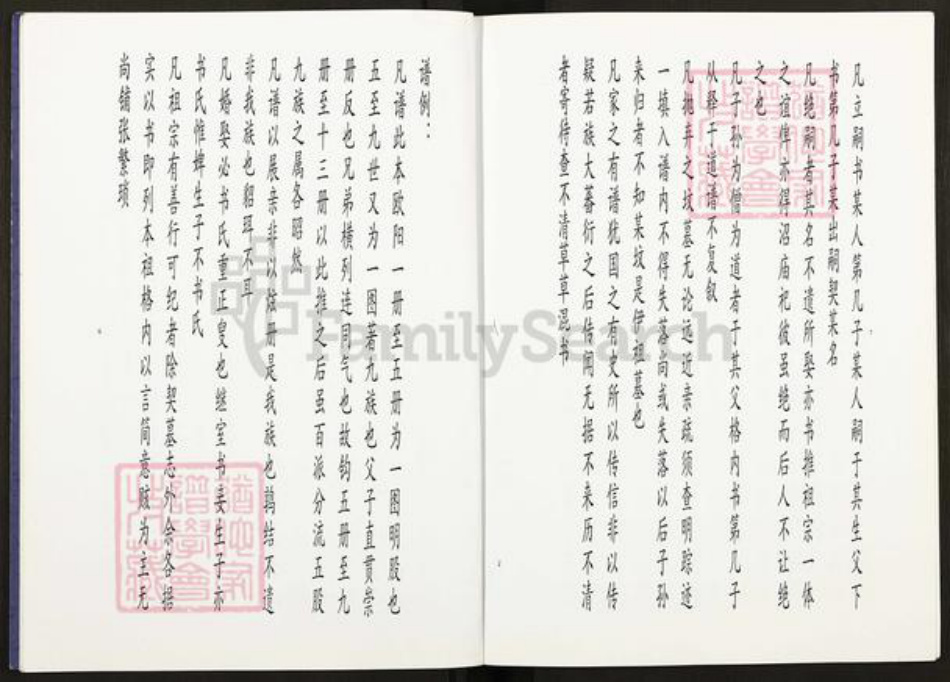 谱例：
凡谱此本欧阳一册至五册为一图明股也
五至九世又为一图著九族也父子直贯崇
册反也兄弟横列连同气也故钧五册至九
册至十三册以此推之后虽百派分流五股
九族之属各昭然
凡谱以展亲非以炫册是我族也鹑结不遗
非我族也貂珥不耳
凡婚娶必书氏重正皇也继室书妾生子亦
书氏惟婢生子不书氏
凡祖宗有善行可纪者除契墓志外余各据
实以书即列本祖格内以言简意赅为主无
尚铺张繁琐
凡立嗣书某人第几子某人嗣于其生父下
书第几子某出嗣契某名
凡绝嗣者其名不遗所娶亦书推祖宗一体
之谊俾亦得沼庙祀彼虽绝而后人不让绝
之也
凡子孙为僧为道者于其父格内书第几子
从释于道谱不复叙
凡抛弃之坟墓无论远近亲疏须查明踪迹
一填入谱内不得失落尚或失落以后子孙
来归者不知某坟是伊祖墓也
凡家之有谱犹国之有史所以传信非以传
疑若族大蕃衍之后传闻无据不来历不清
者寄待查不清草草混书
猶他家
譜學會
猶他家
譜學會
FamilySearch